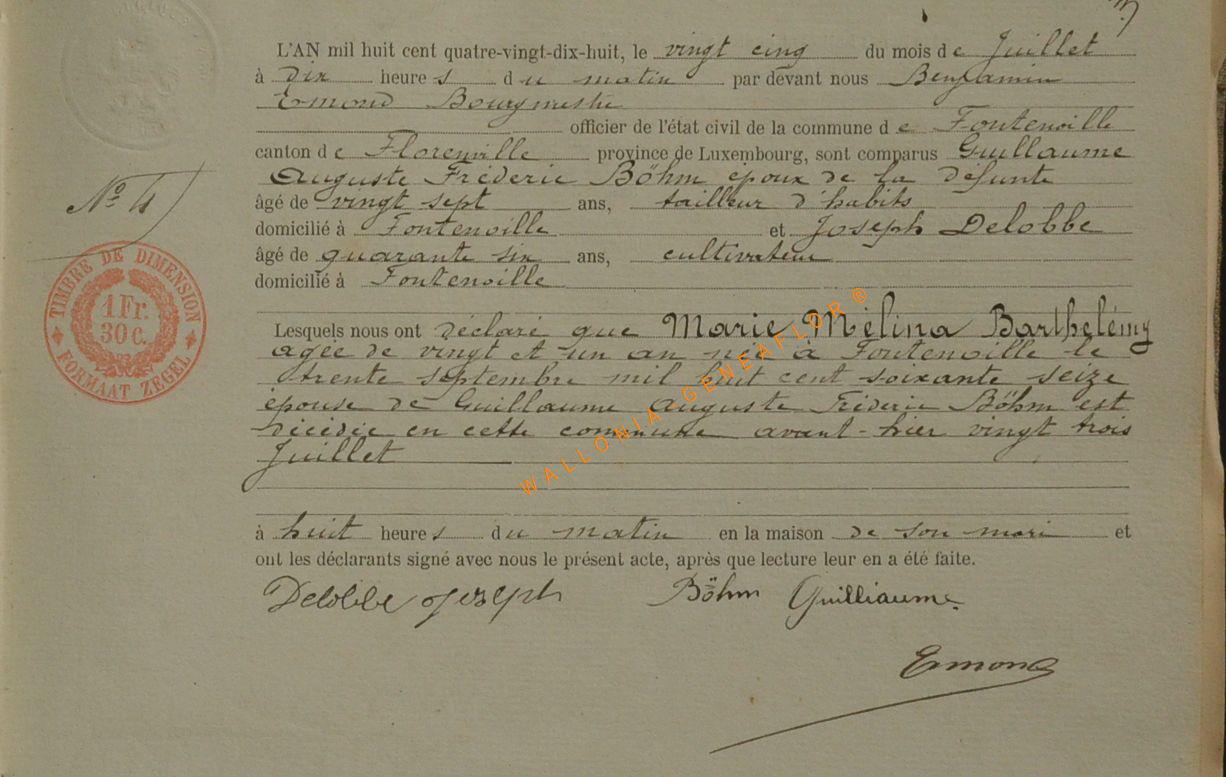 L'AN mil huit cent quatre-vingt-dix-huit, le vingt cinq du mois de Juillet
à dix heures du matin par devant nous Benjamin
Ermond Bourgmestre
officier de l'état civil de la commune de Fontenoille
canton de Florenville province de Luxembourg, sont comparus Guillaume
Auguste Fréderic Böhm époux de la defunte
N° 4
âgé de vingt sept ans, tailleur d'habits
domicilié à Fontenoille et Joseph Delobbe
âgé de quarante six ans, cultivateur
domicilié à Fontenoille
TIMBRE DE DIMENSION
1 Fr.
30 c.
FORMAAT ZEGEL
Lesquels nous ont déclaré que Marie Mélina Barthelémy
agée de vingt et un an née à Fontenoille le
trente septembre mil huit cent soixante seize
épouse de Guillaume Auguste Fréderic Böhm est
décédée en cette commune avant-hier vingt trois
Juillet
WALLONIA-GENEAFLOR®
à huit heures du matin en la maison de son mari et
ont les déclarants signé avec nous le présent acte, après que lecture leur en a été faite.
Delobbe Joseph Böhm Guilliaume
Ermond